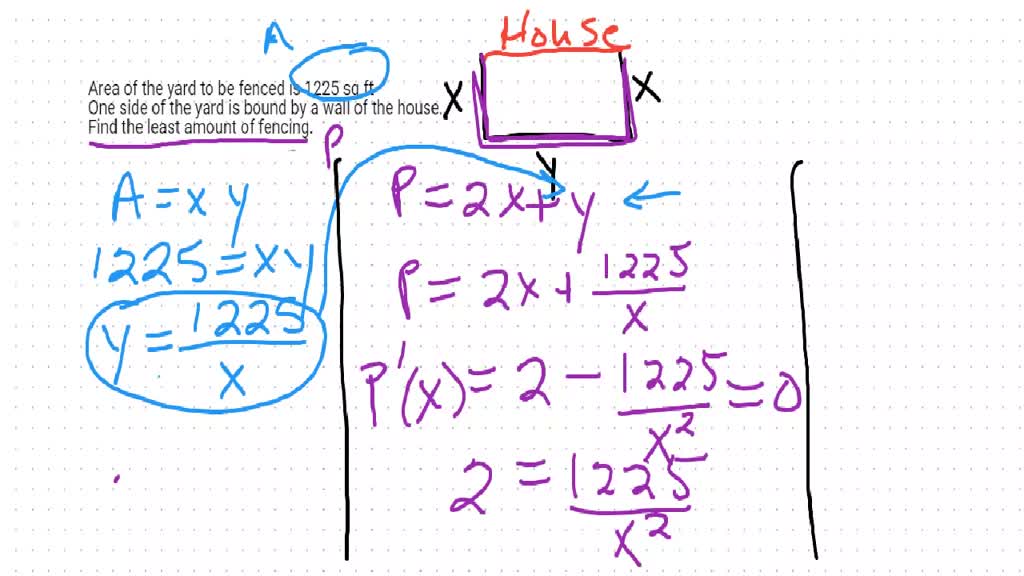 House
A
Area of the yard to be fenced is 1225 sq ft
One side of the yard is bound by a wall of the house.
Find the least amount of fencing.
X
X
y
P
A = x y
1225 = xy
y = 1225/x
P = 2x + y
P = 2x + 1225/x
P'(x) = 2 - 1225/x² = 0
2 = 1225/x²